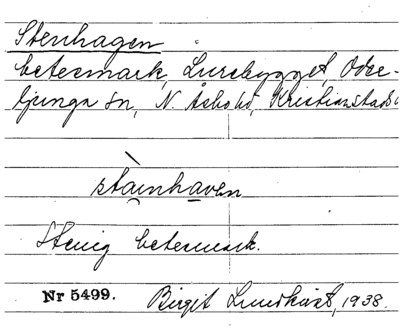 Stenhagen
betesmark, Lurebygget, Oder-
ljunga sn, N. Åsbo hd, Kristianstads
stainhaven
Stenig betesmark.
Nr 5499. Birgit Lundkvist, 1938.